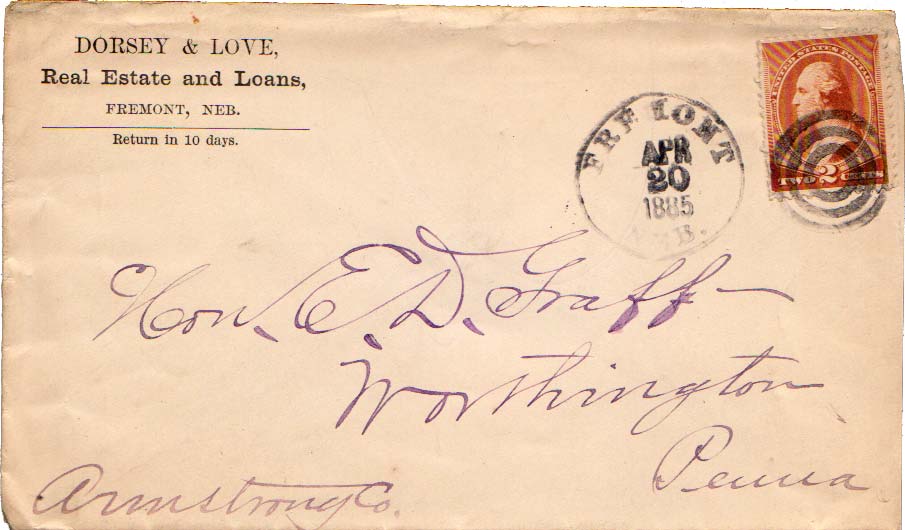 DORSEY & LOVE,
Real Estate and Loans,
FREMONT, NEB.
Return in 10 days.
FREMONT
APR
20
1885
NEB.
UNITED STATES POSTAGE
TWO 2 CENTS
Hon. E. D. Graff
Worthington
Penna
Armstrong Co.